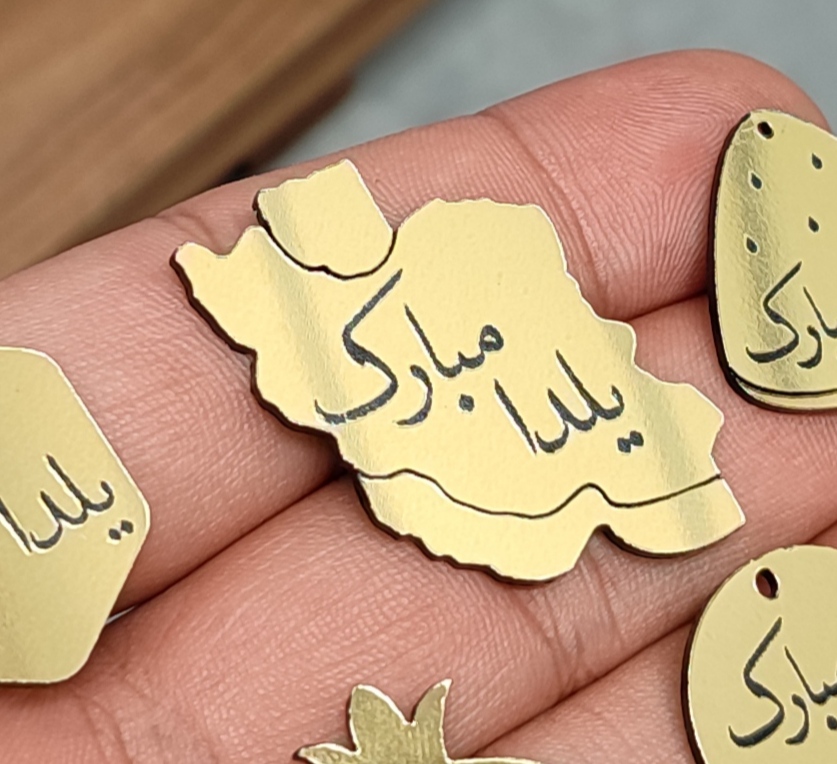 یلدا
مبارک
یلدا
مبارک
مبارک